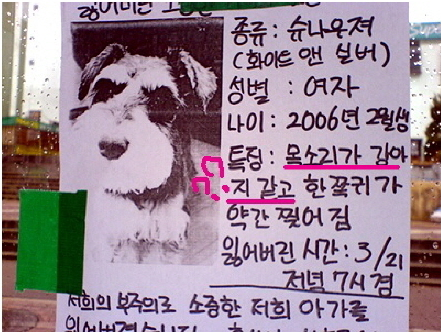 잃어버린 소중한
종류 : 슈나우져
(화이트 앤 실버)
성별 : 여자
나이 : 2006년 2월생
특징 : 목소리가 강아
지 같고 한쪽귀가
약간 찢어 짐
잃어버린 시간 : 3/21
저녁 7시 겸
저희의 부주의로 소중한 저희 아가를
잃어버렸습니다